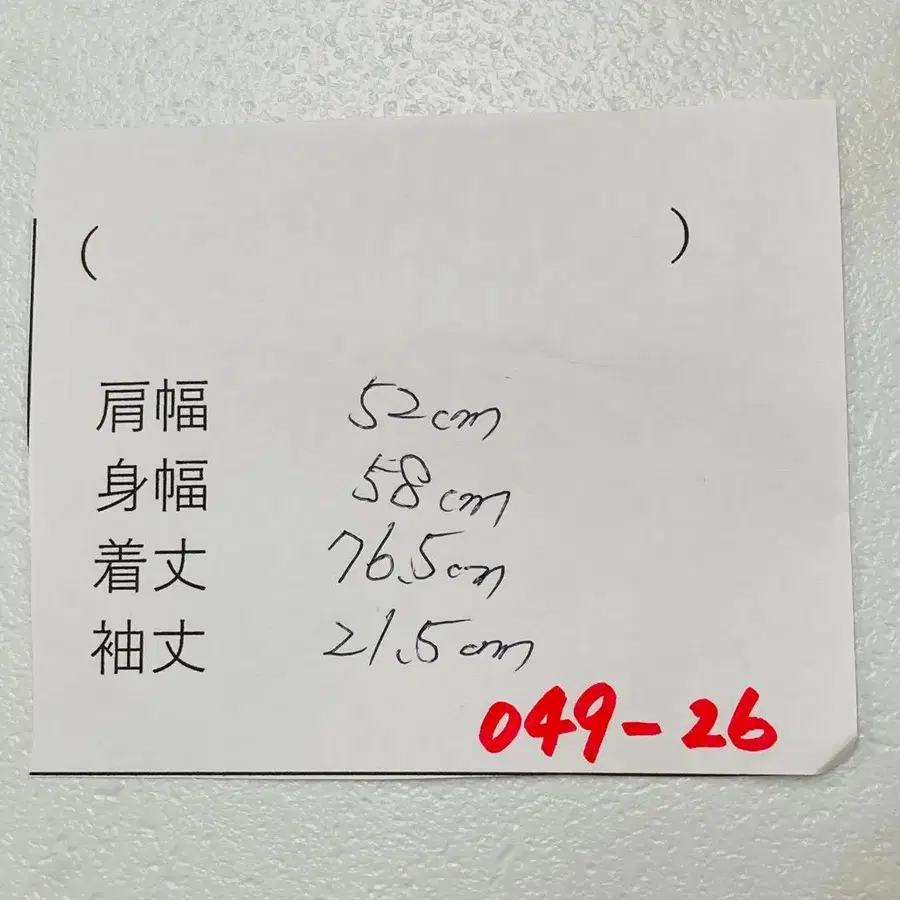 ( )
肩幅 52cm
身幅 58cm
着丈 76.5cm
袖丈 21.5cm
049-26